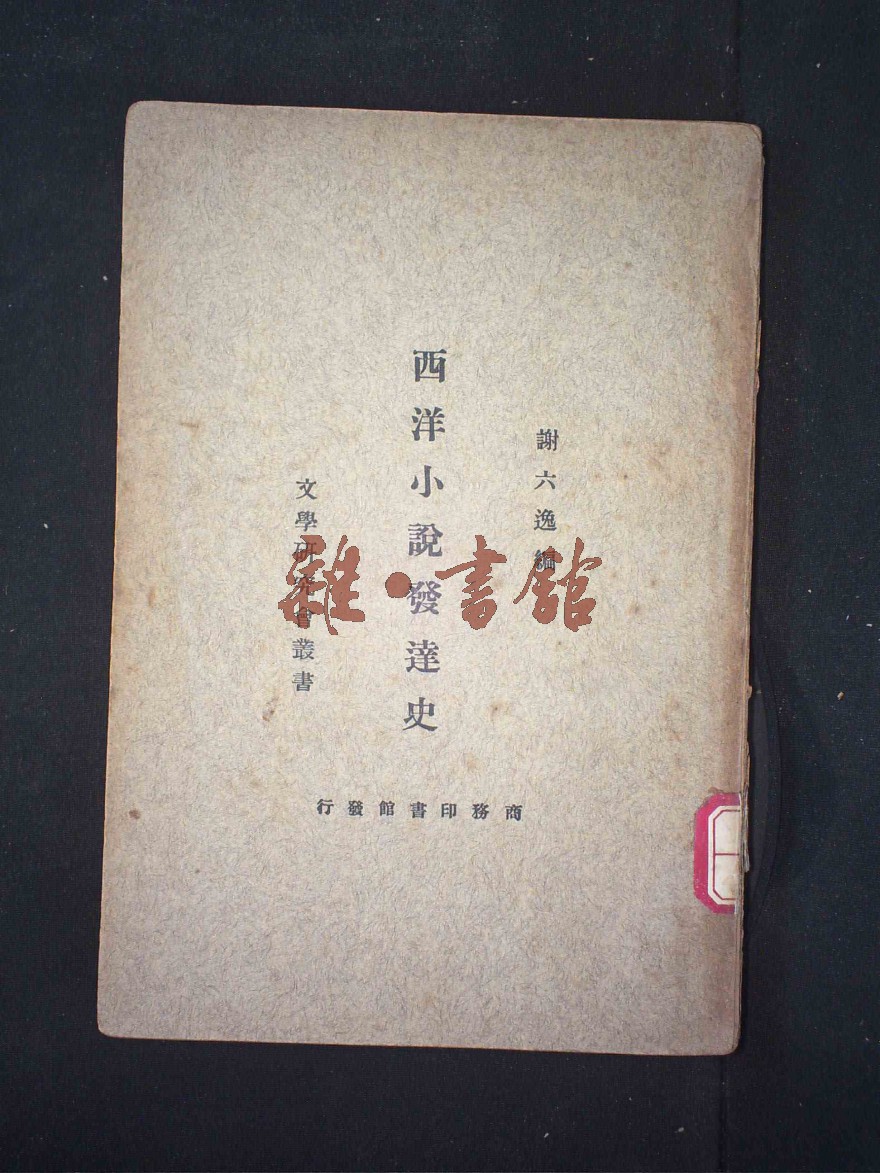 謝六逸編
西洋小說發達史
文學研究會叢書
商務印書館發行
雜·書館